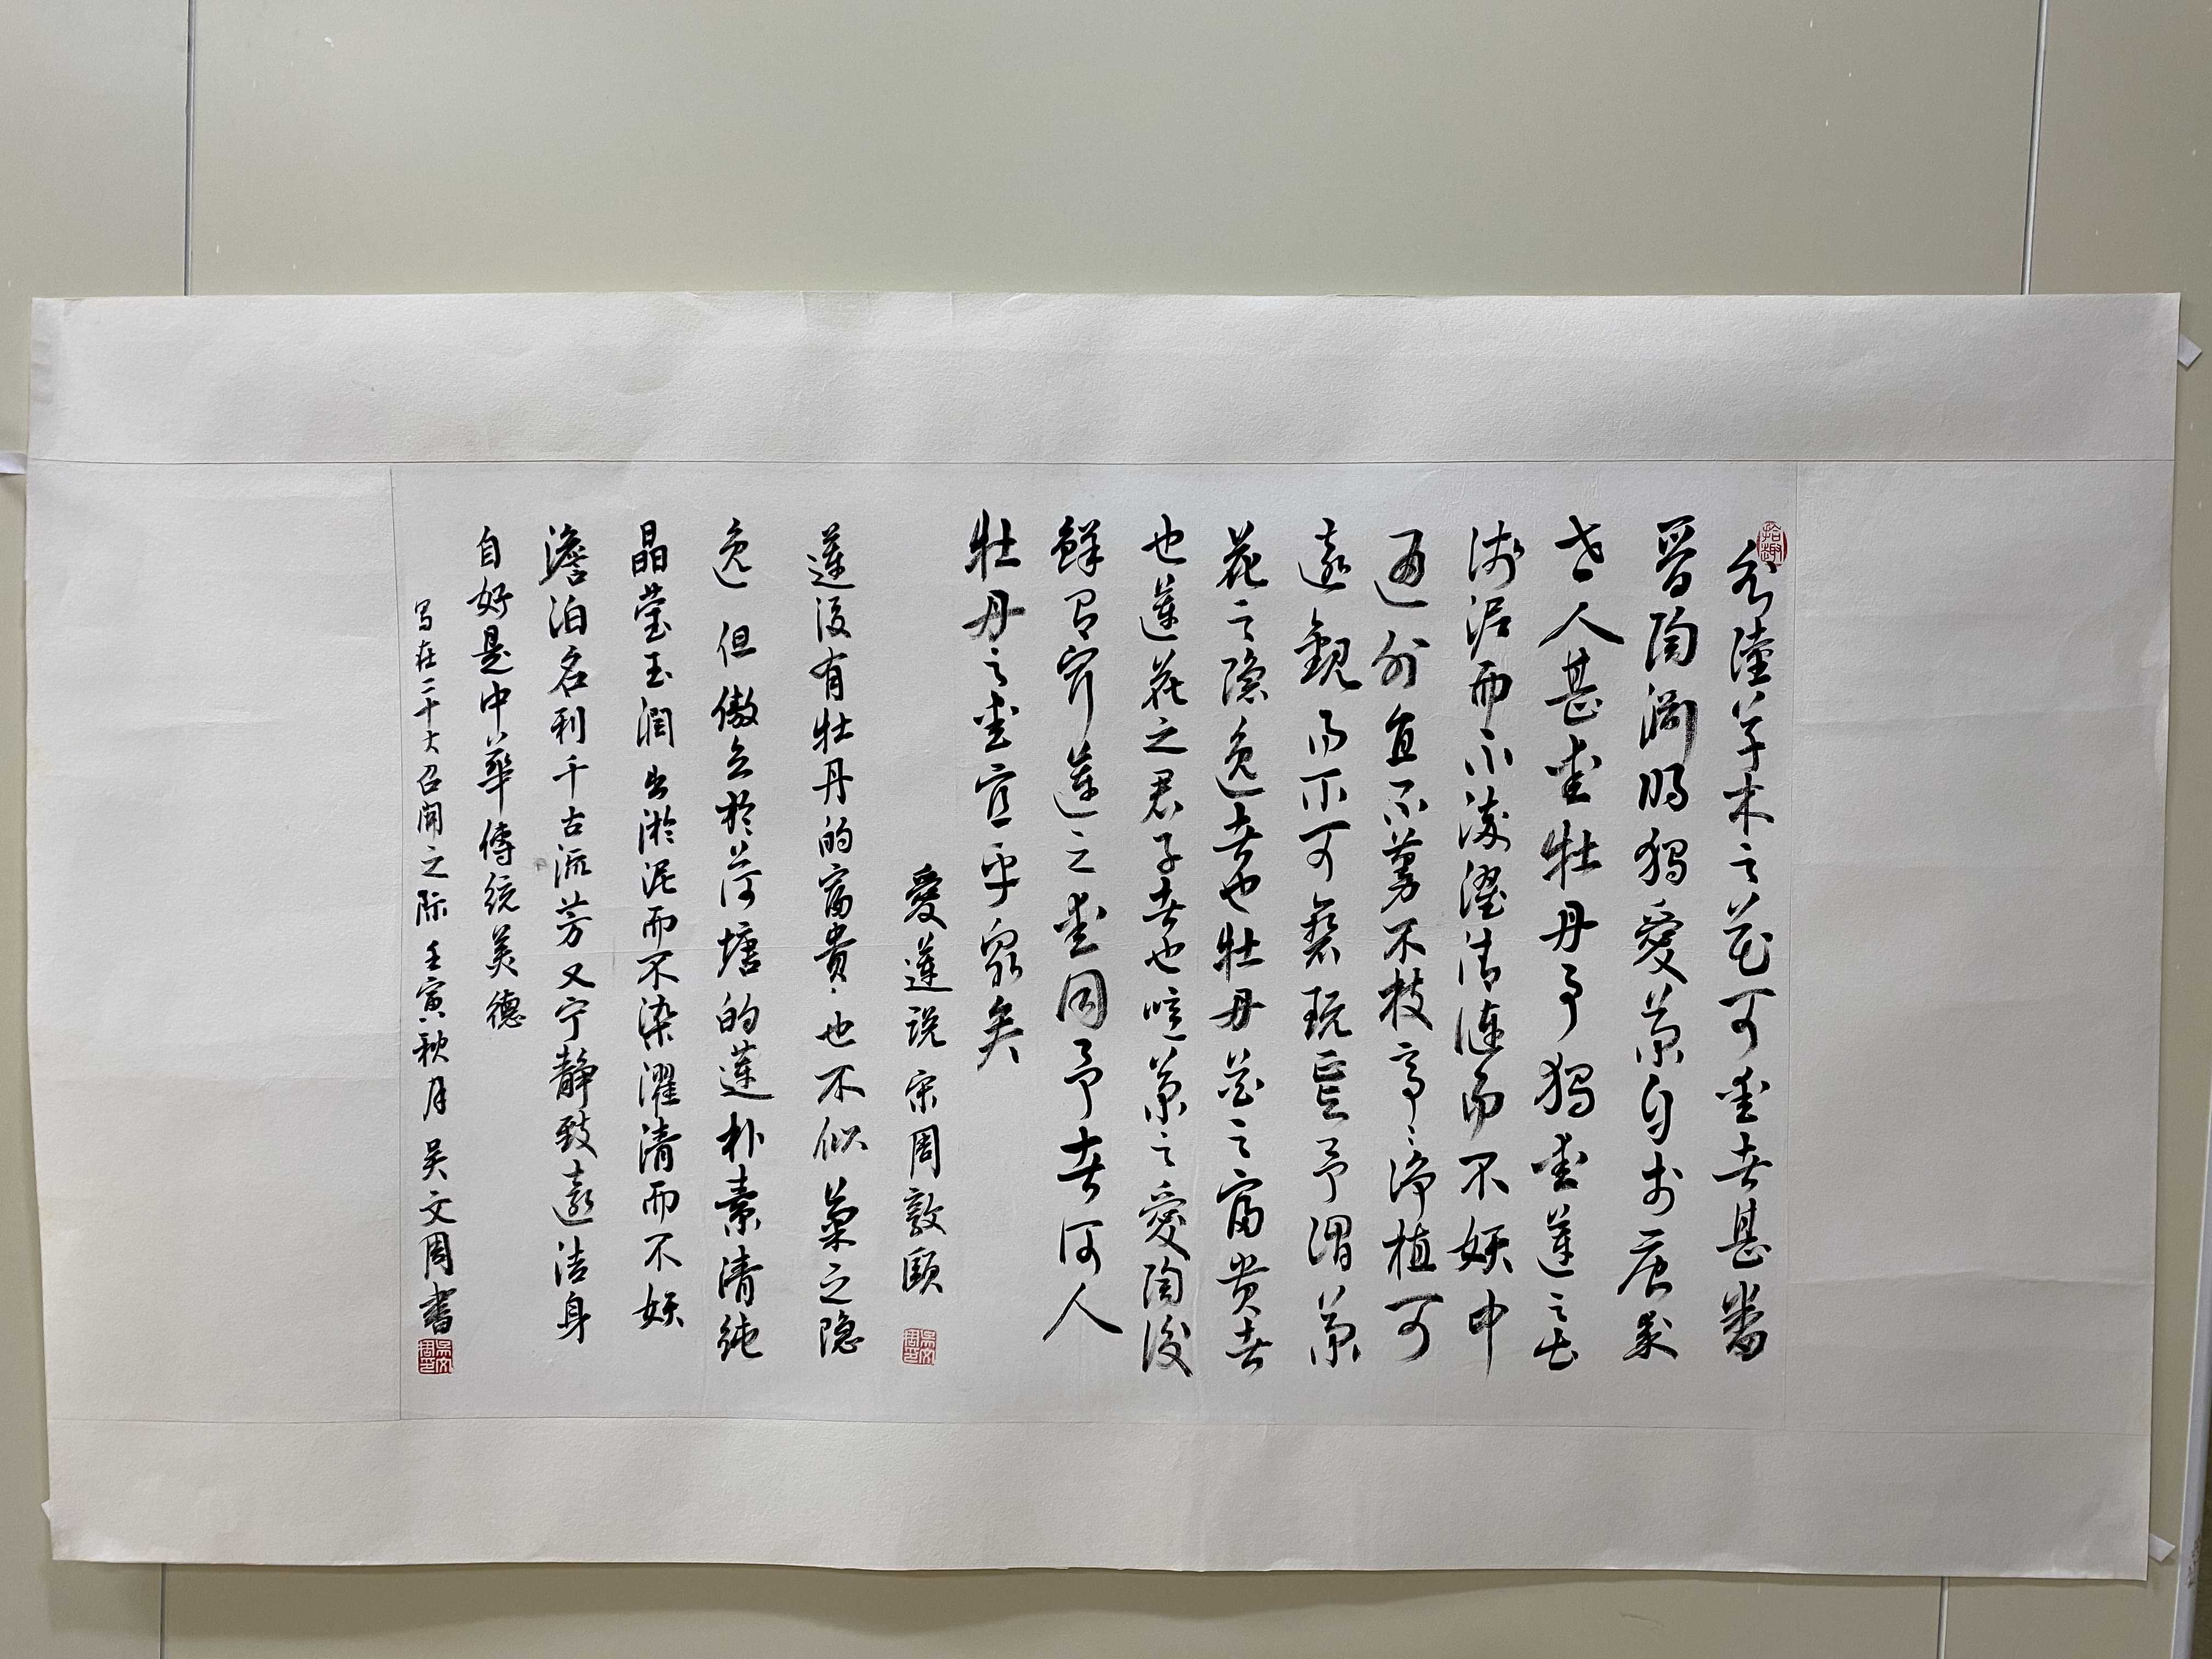 水陸草木之花可愛者甚蕃
晉陶淵明獨愛菊自李唐來
世人甚愛牡丹予獨愛蓮之出
淤泥而不染濯清漣而不妖中
通外直不蔓不枝香遠益清亭亭淨植可
遠觀而不可褻玩焉予謂菊
花之隐逸者也牡丹花之富贵者
也蓮花之君子者也噫菊之愛陶後
鲜有闻蓮之愛同予者何人
牡丹之愛宜乎衆矣
愛蓮説 宋周敦頤
蓮没有牡丹的富貴也不似菊之隐
逸但傲立於荷塘的蓮朴素清純
晶莹玉潤出淤泥而不染濯清而不妖
澹泊名利千古流芳又宁静致遠洁身
自好是中華傳統美德
写在二十大召開之际 壬寅秋月 吴文周書